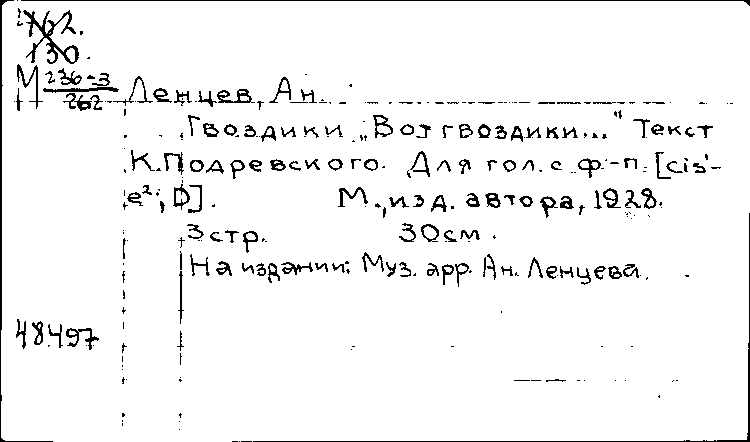 762.
130.
М 236-3/262 Ленцев, Ан.
Гвоздики „Вот гвоздики..." Текст
К. Подревского. Для гол. с ф-п. [cis'-
e²; D]. М., изд. автора, 1928.
3 стр. 30 см.
На издании: Муз. арр. Ан. Ленцева.
48497